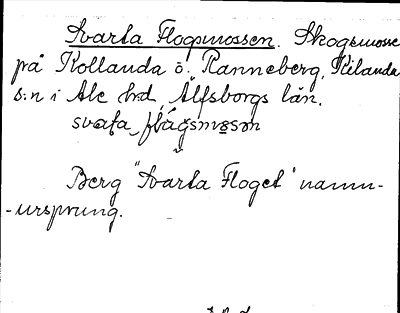 Svarta Flogsmossen. Skogsmosse
på Kollanda ö. Ranneberg, Kilanda
s:n i Ale hd, Älfsborgs län.
svaʈa flågsmɷsən
Berg "Svarta Floget" namn-
-ursprung.